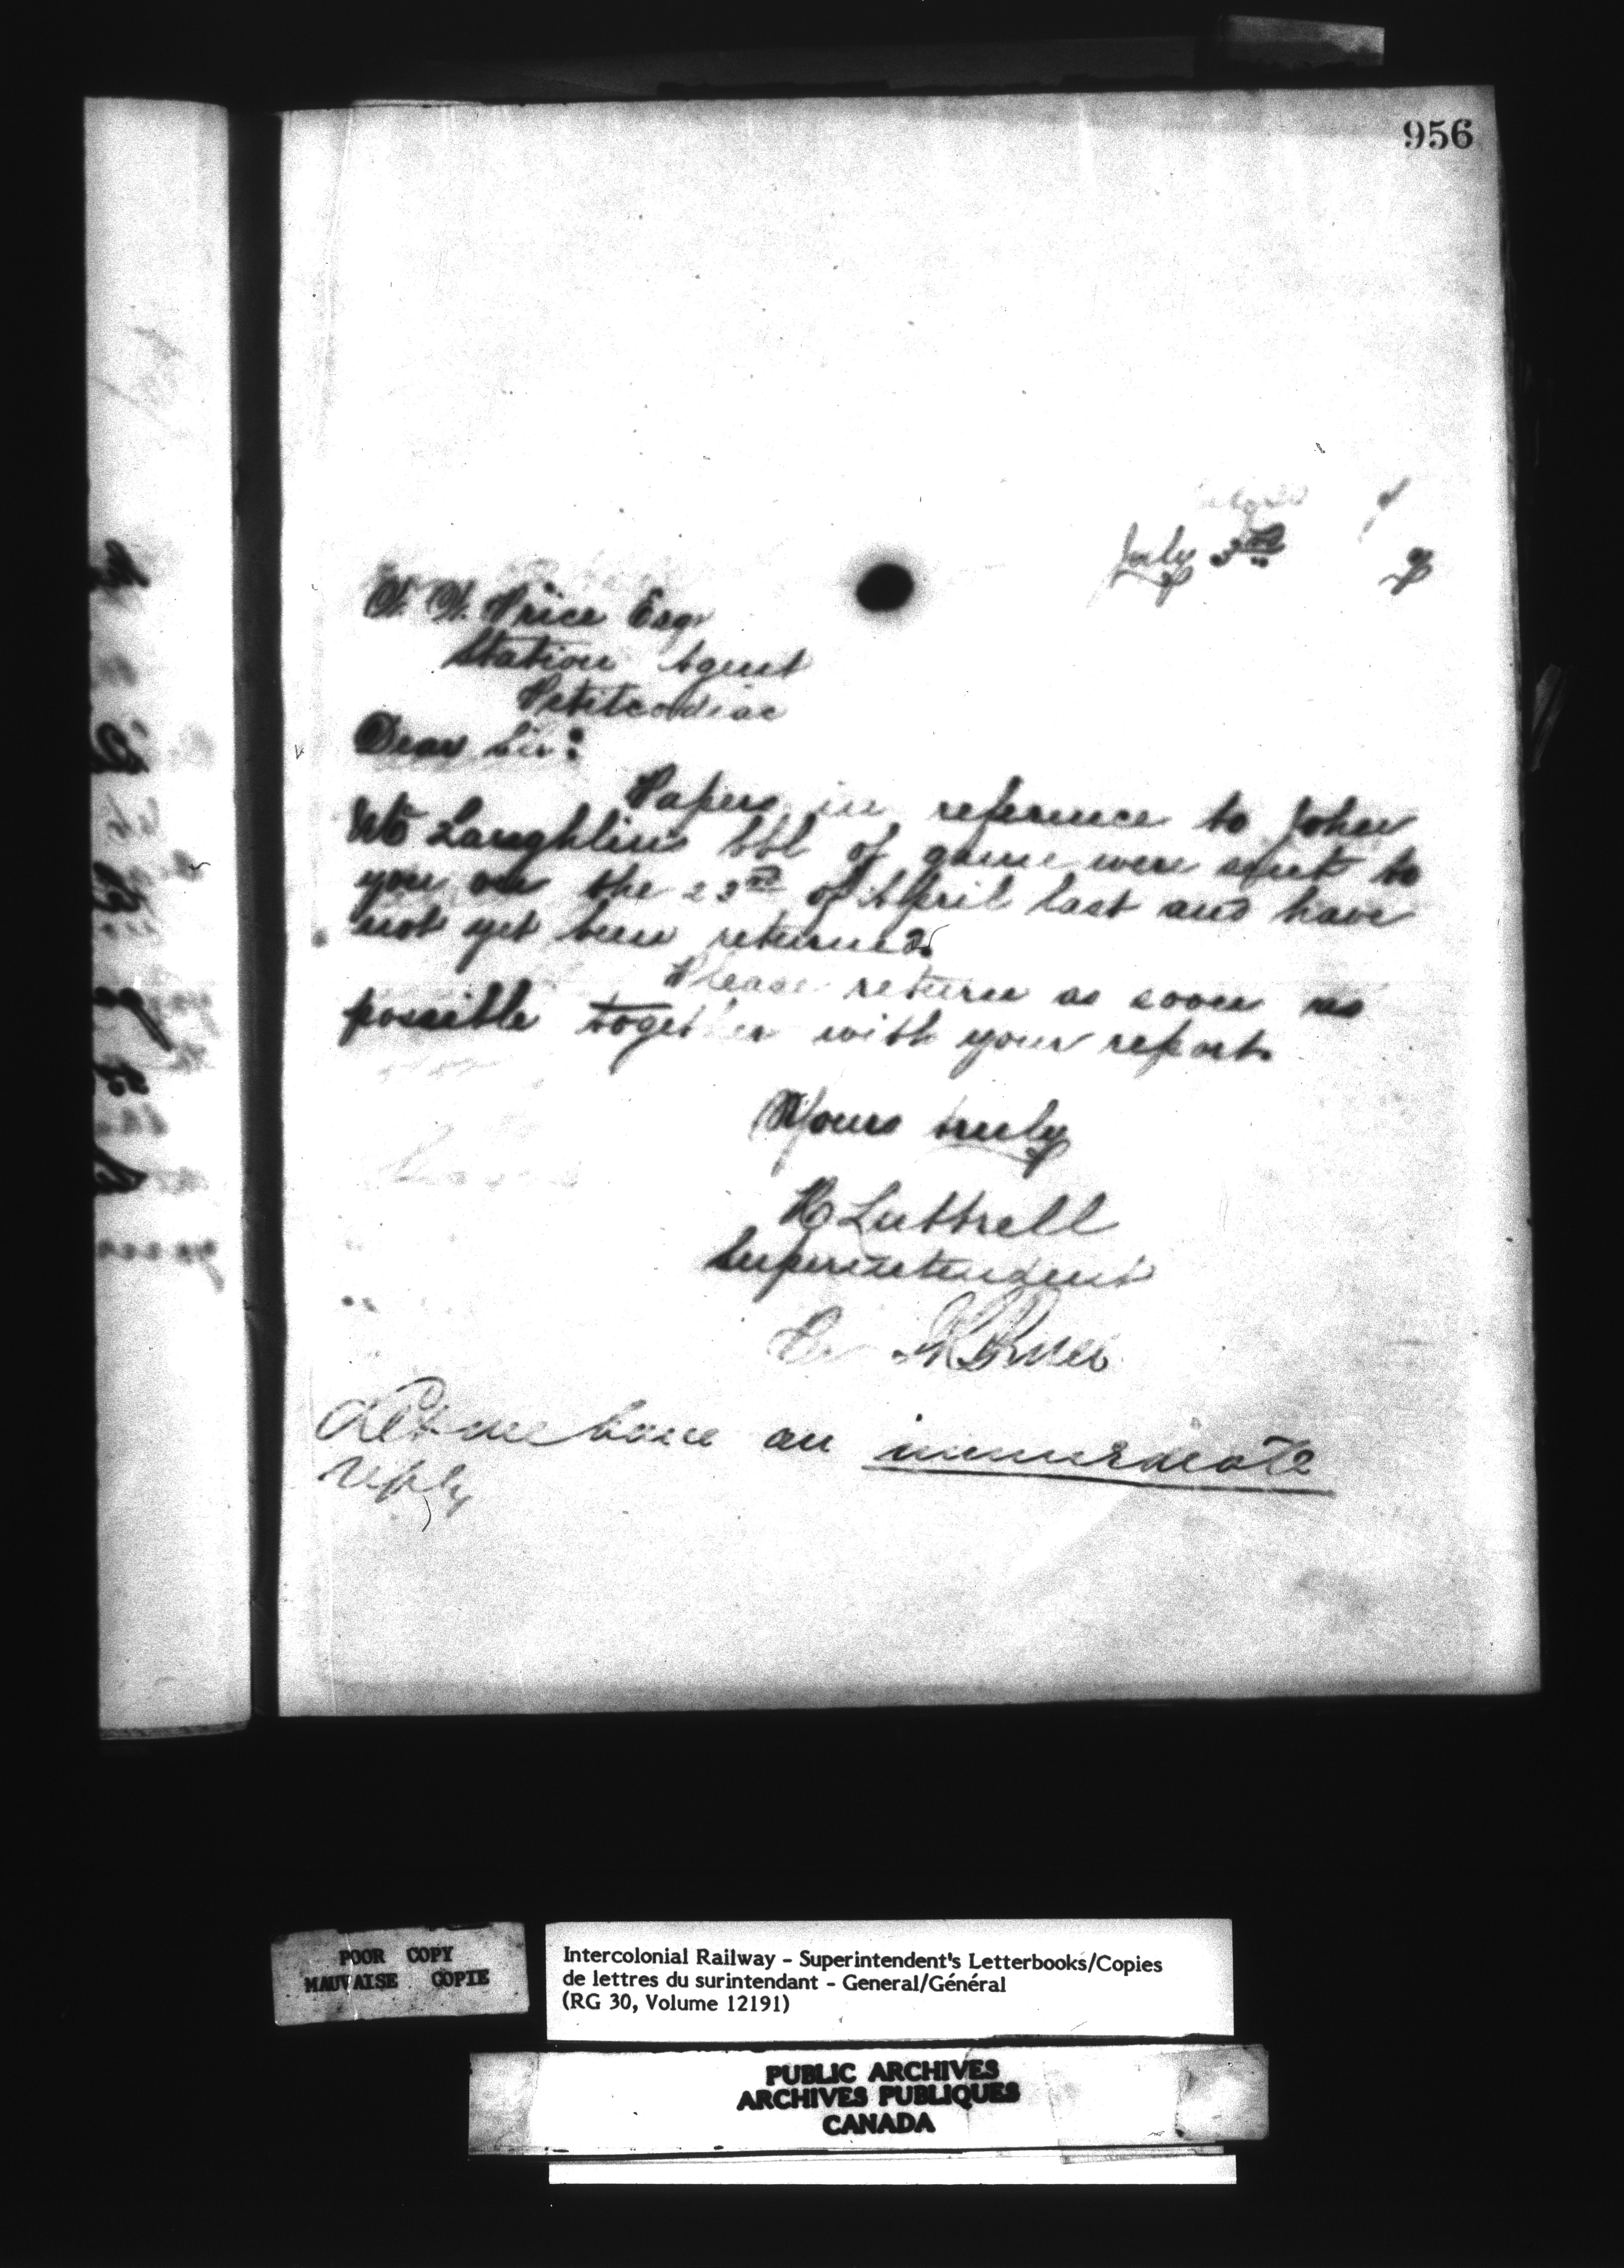 956
July 3rd
W. W. Price Esqr
Station Agent
Petitcodiac
Dear Sir:
Papers in reference to John
McLaughlins bbl of game were sent to
you on the 23rd of April last and have
not yet been returned.
Please return as soon as
possible together with your report.
Yours truly
H Luttrell
Superintendent
Per
Let me have an immediate
reply
POOR COPY
MAUVAISE COPIE
Intercolonial Railway - Superintendent's Letterbooks/Copies
de lettres du surintendant - General/Général
(RG 30, Volume 12191)
PUBLIC ARCHIVES
ARCHIVES PUBLIQUES
CANADA